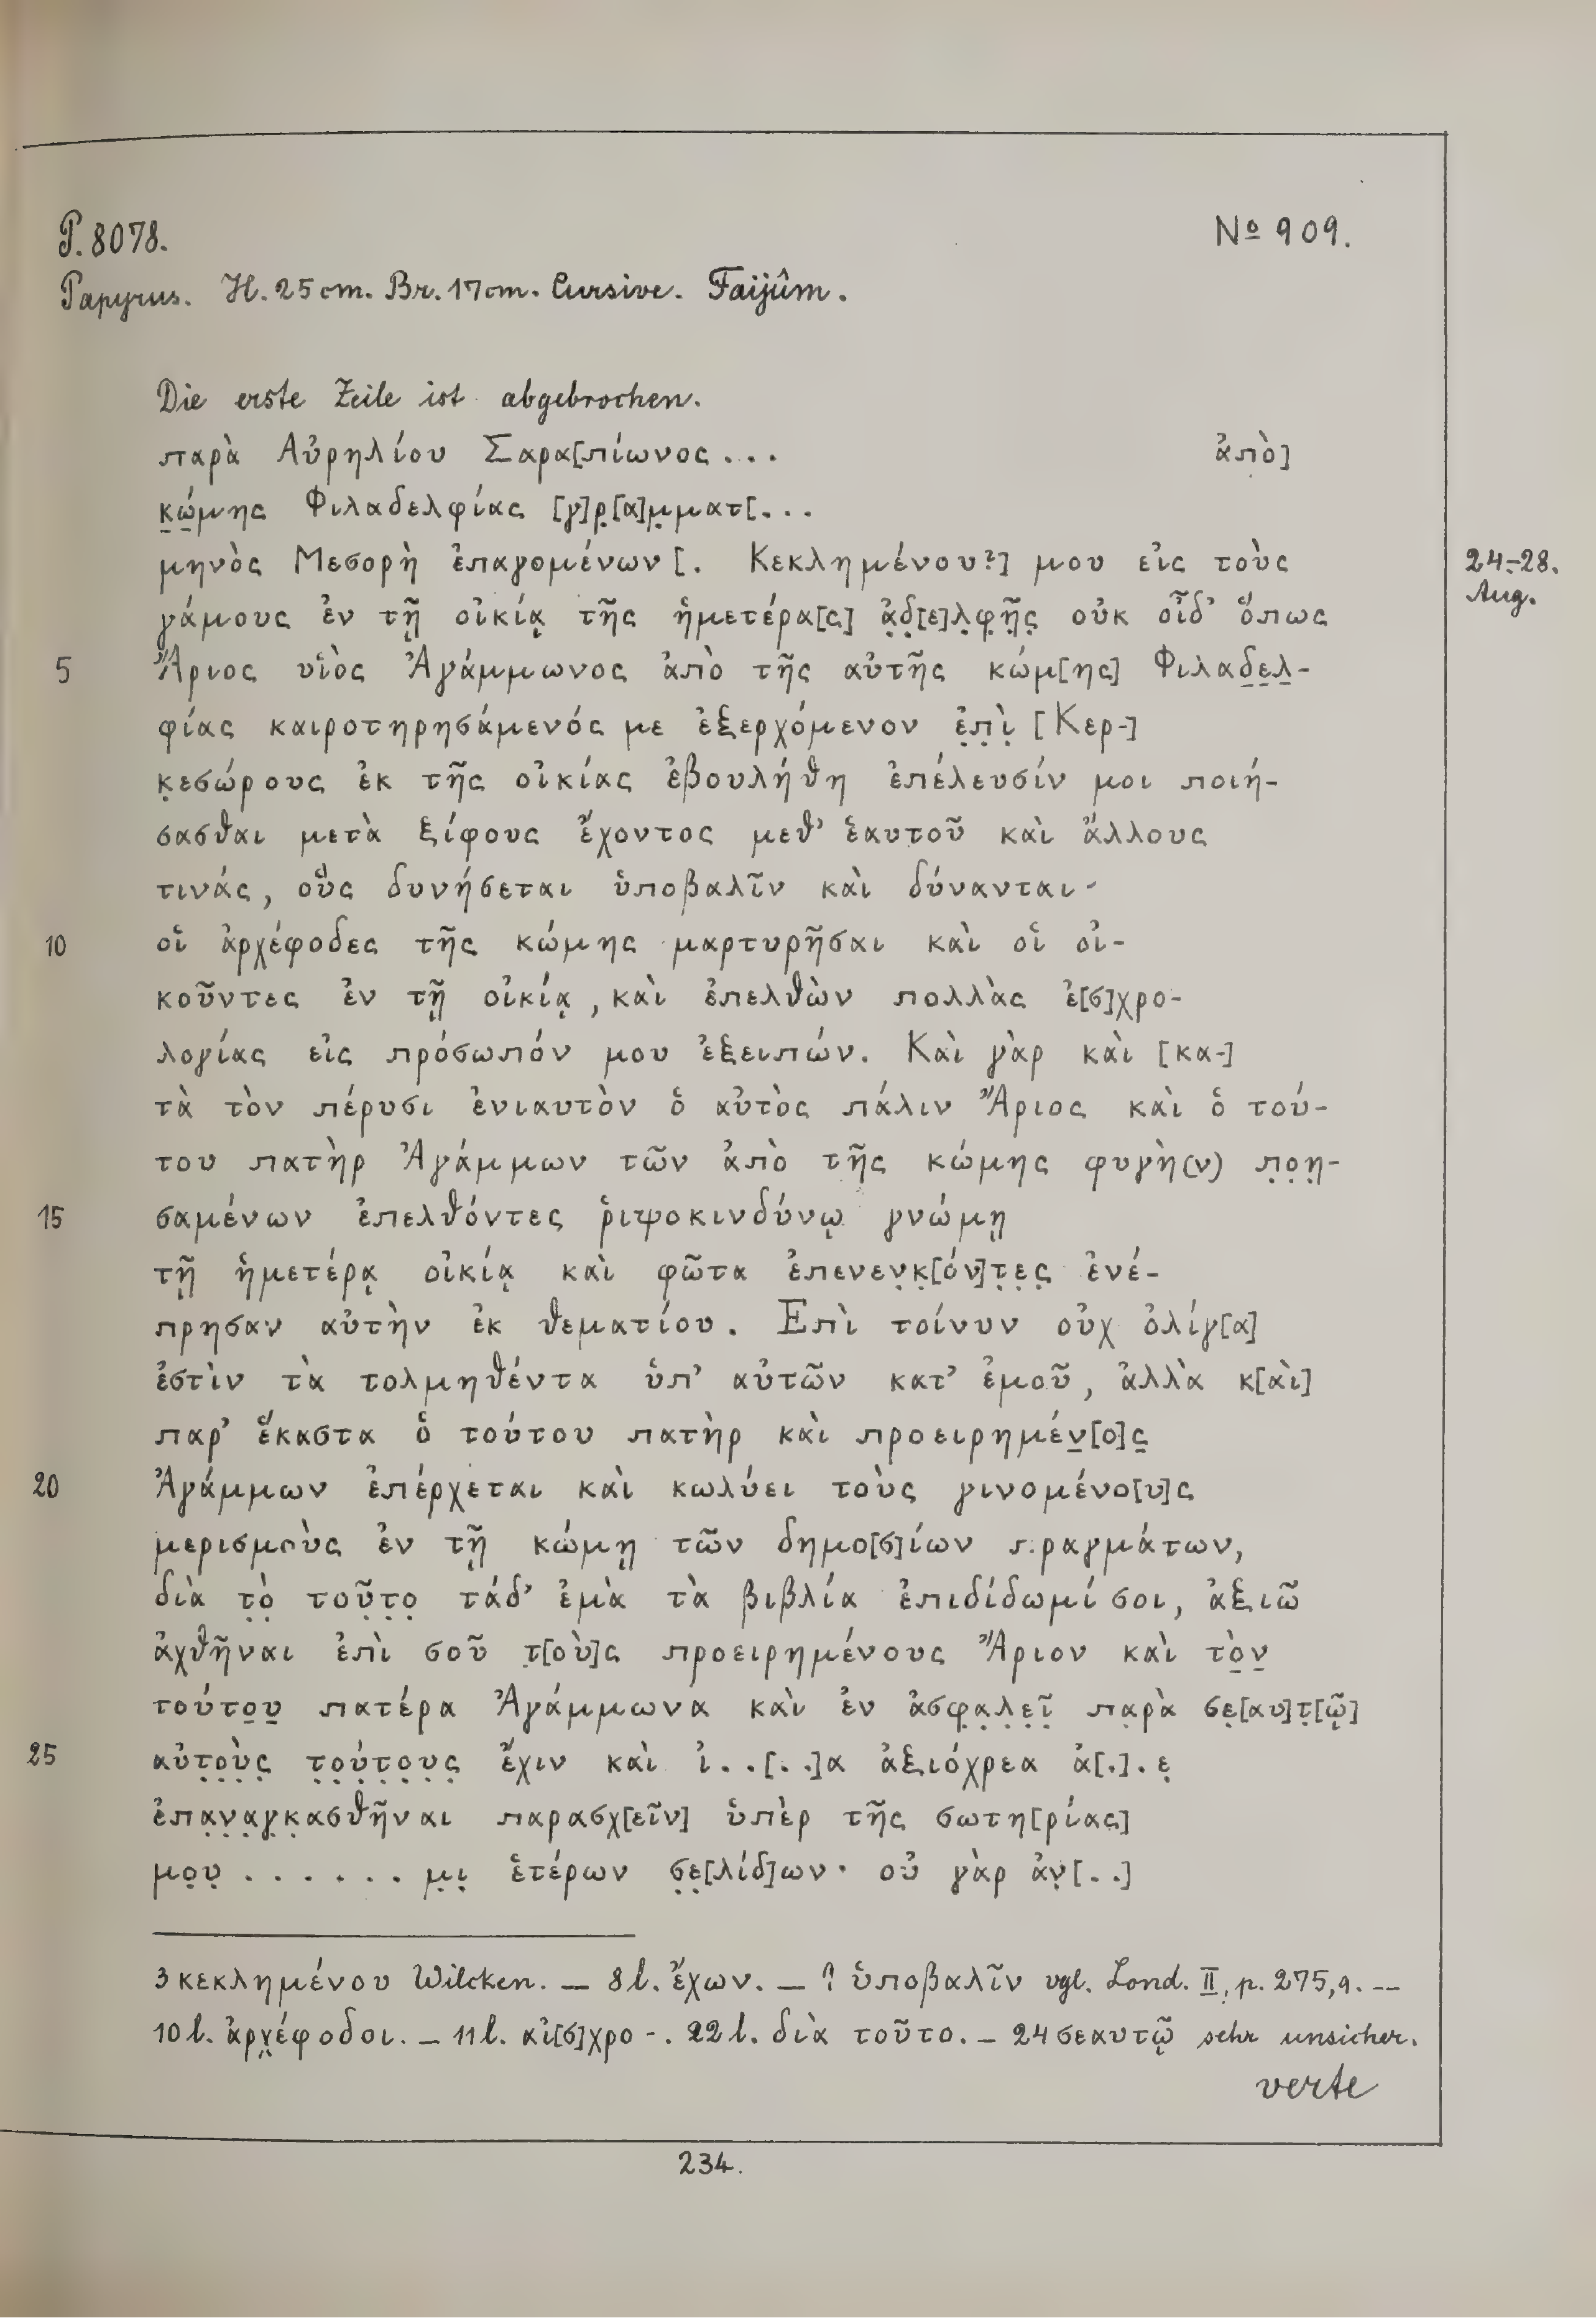 P. 8078.
№ 909.
Papyrus. H. 25 cm. Br. 17 cm. Cursive. Faijûm.
Die erste Zeile ist abgebrochen.
παρὰ Αὐρηλίου Σαρα[πίωνος . . . ἀπὸ]
κ̣ώ̣μης Φιλαδελφίας [γ]ρ̣[α]μ̣ματ[. . .
μηνὸς Μεσορὴ ἐπαγομένων [. Κεκλημένου?] μου εἰς τοὺς
24.–28. Aug.
γάμους ἐν τῇ οἰκίᾳ τῆς ἡμετέρα[ς] ἀ̣δ̣[ε]λ̣φ̣ῆ̣ς̣ οὐκ οἶδ’ ὅπως
5 Ἄριος υἱὸς Ἀγάμμωνος ἀπὸ τῆς αὐτῆς κώμ[ης] Φιλαδ̣ε̣λ̣-
φίας καιροτηρησάμενός με ἐξερχόμενον ἐ̣π̣ὶ̣ [Κερ-]
κ̣εσώρους ἐκ τῆς οἰκίας ἐβουλήθη ἐπέλευσίν μοι ποιή-
σασθαι μετὰ ξίφους ἔχοντος μεθ’ ἑαυτοῦ καὶ ἄλλους
τινάς, οὓς δυνήσεται ὑποβαλῖν καὶ δύνανται·
10 οἱ ἀρχέφοδες τῆς κώμης μαρτυρῆσαι καὶ οἱ οἰ-
κοῦντες ἐν τῇ οἰκίᾳ, καὶ ἐπελθὼν πολλὰς ἐ[σ]χρο-
λογίας εἰς πρόσωπόν μου ἐξειπών. Καὶ γὰρ καὶ [κα-]
τὰ τὸν πέρυσι ἐνιαυτὸν ὁ αὐτὸς πάλιν Ἄριος καὶ ὁ τού-
του πατὴρ Ἀγάμμων τῶν ἀπὸ τῆς κώμης φυγὴ(ν) π̣ο̣η̣-
15 σαμένων ἐπελθόντες ῥιψοκινδύνῳ γνώμῃ
τῇ ἡμετέρᾳ οἰκίᾳ καὶ φῶτα ἐπενεν̣κ̣[όν]τ̣ε̣ς̣ ἐνέ-
πρησαν αὐτὴν ἐκ θεματίου. Ἐπὶ τοίνυν οὐχ ὀλίγ[α]
ἐστὶν τὰ τολμηθέντα ὑπ’ αὐτῶν κατ’ ἐμοῦ, ἀλλὰ κ[αὶ]
παρ’ ἕκαστα ὁ τούτου πατὴρ καὶ προειρημέν̣[ο]ς̣
20 Ἀγάμμων ἐπέρχεται καὶ κωλύει τοὺς γινομένο[υ]ς
μερισμοὺς ἐν τῇ κώμῃ τῶν δημο[σ]ίων πραγμάτων,
διὰ τ̣ὸ̣ τοῦτ̣ο̣ τάδ’ ἐμὰ τὰ βιβλία ἐπιδίδωμί σοι, ἀξιῶ
ἀχθῆναι ἐπὶ σοῦ τ̣[οὺ]ς προειρημένους Ἄριον καὶ τὸ̣ν̣
τούτο̣υ̣ πατέρα Ἀγάμμωνα καὶ ἐν ἀσφ̣α̣λ̣ε̣ῖ̣ π̣αρὰ σε̣[αυ]τ̣[ῷ]
25 αὐτ̣ο̣ὺ̣ς̣ τ̣ο̣ύ̣τ̣ο̣υ̣ς̣ ἔχιν καὶ ἱ . . [. .]α ἀξιόχρεα ἀ[.] . ε̣
ἐπα̣ν̣α̣γ̣κ̣ασθῆναι παρασχ[εῖν] ὑπὲρ τῆς σωτη[ρίας]
μο̣υ̣ . . . . . . . μ̣ι̣ ἑτέρων σ̣ε̣[λίδ]ων· οὐ γὰρ ἀν̣[. .]
3 κεκλημένου Wilcken. — 8 l. ἔχων. — 9 ὑποβαλῖν vgl. Lond. II, p. 275, 9. —
10 l. ἀρχέφοδοι. — 11 l. αἰ[σ]χρο-. 22 l. διὰ τοῦτο. — 24 σεαυτῷ sehr unsicher.
verte
234.